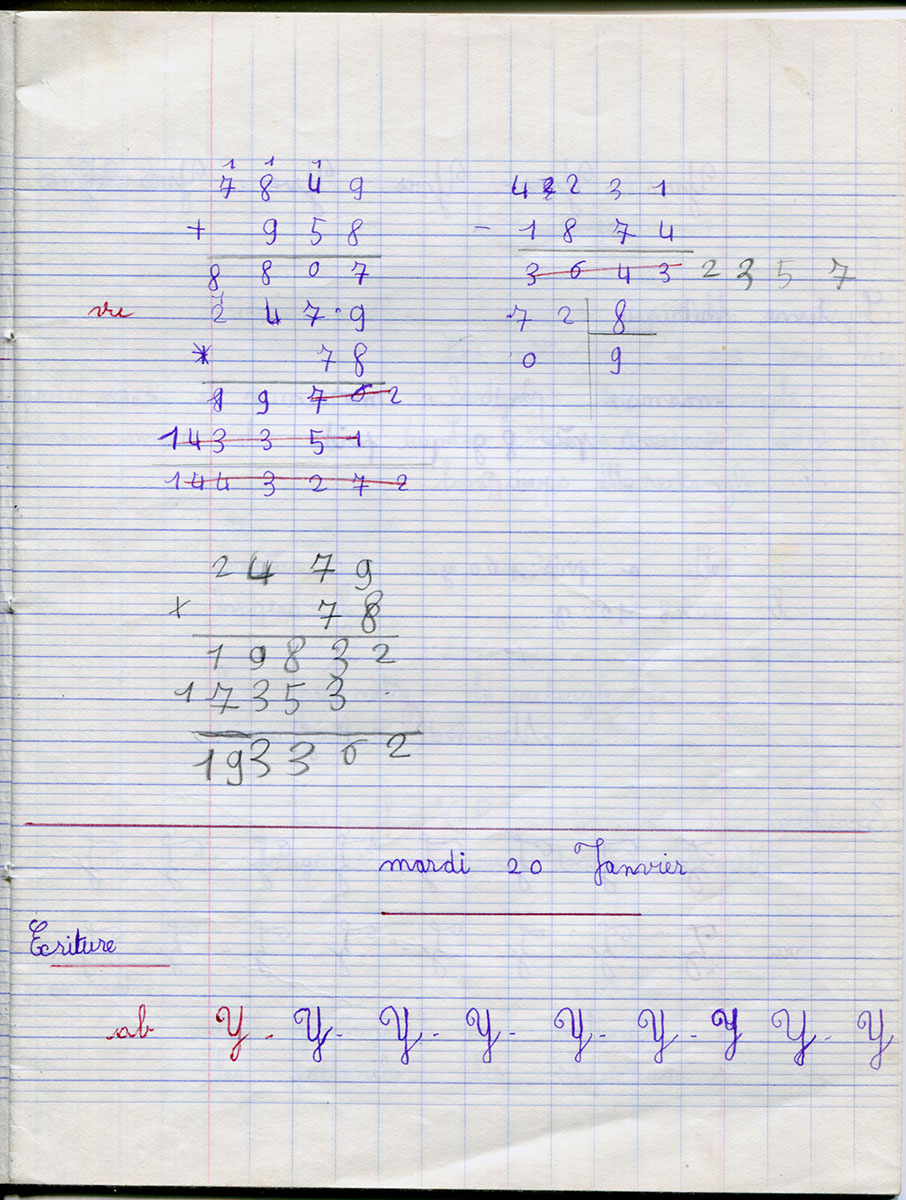 1 1 1
7 8 4 9
+ 9 5 8
8 8 0 7
4 2 2 3 1
- 1 8 7 4
3 6 4 3 2 3 5 7
7 2 8
0 9
vu
2 4 7 9
* 7 8
1 9 7 6 2
14 3 3 5 1
14 4 3 2 7 2
2 4 7 9
x 7 8
1 9 8 3 2
1 7 3 5 3 .
1 9 3 3 6 2
mardi 20 Janvier
Ecriture
ab Y - Y - Y - Y - Y - Y - Y Y - Y